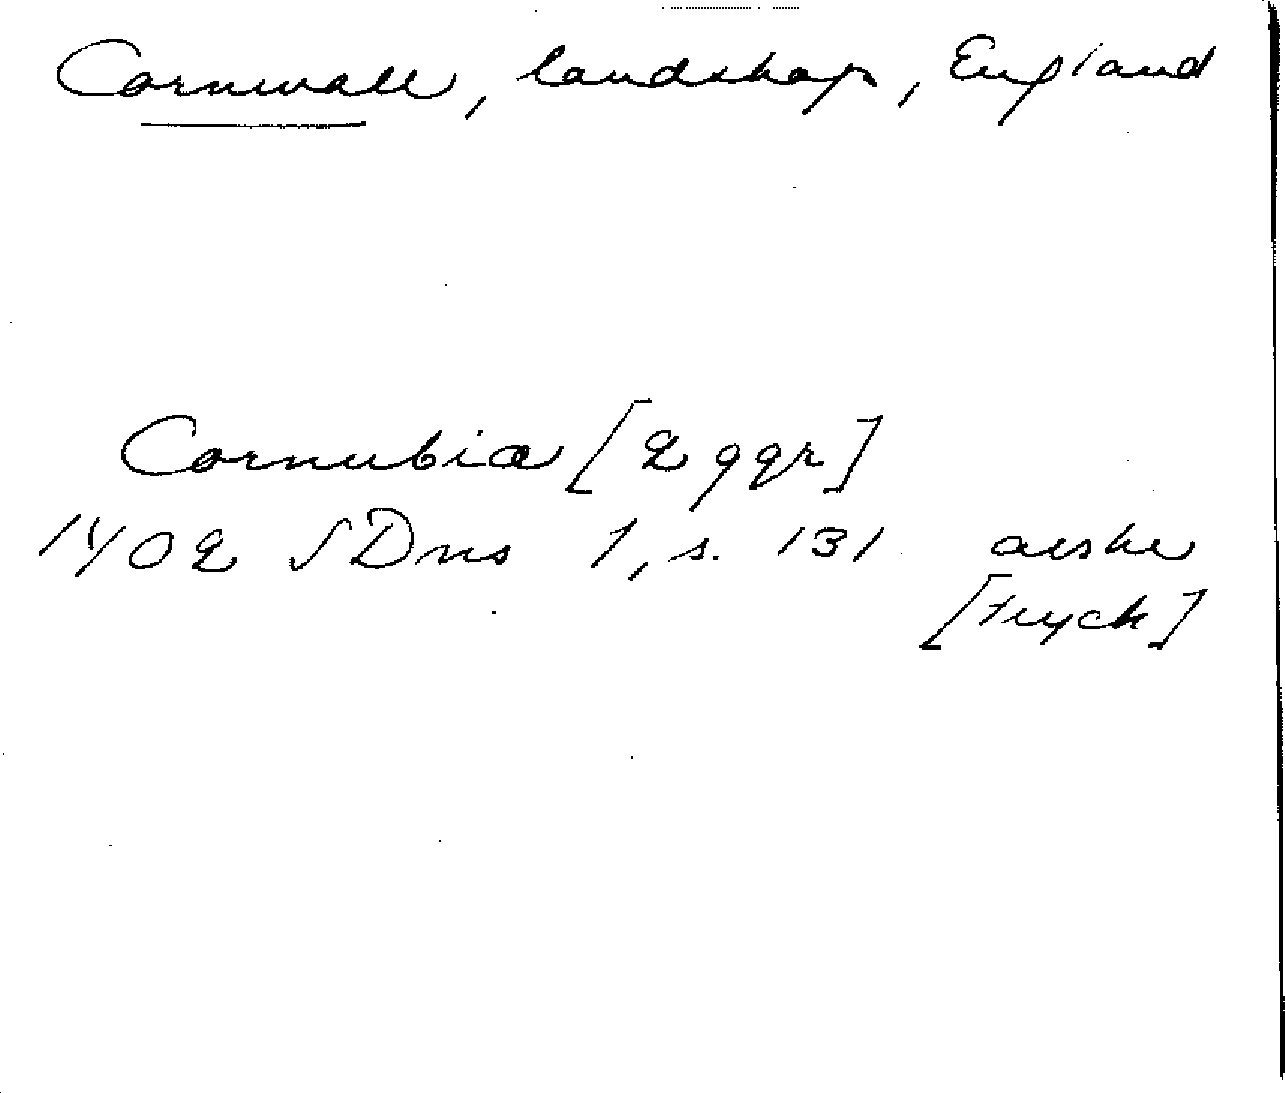 Cornwall, landskap, England
Cornubia [2 ggr]
1402 SDns 1, s. 131 avskr
[tryck]